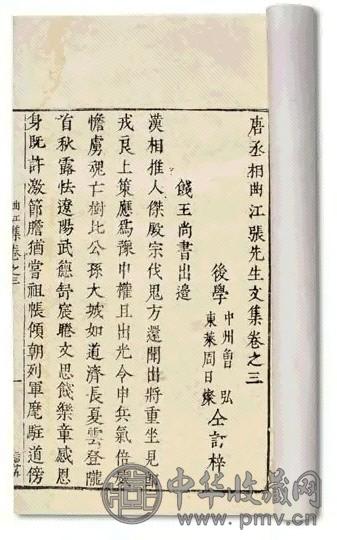 唐丞相曲江張先生文集卷之三
後學 中州曾弘
東萊周日燦 仝訂梓
餞王尚書出邊
漢相推人傑殷宗伐鬼方還聞出將重坐見
戎良上策應爲豫中權且出光令申兵氣倍
憺虜魂亡樹比公孫大城如道濟長夏雲登隴
首秋露怯遼陽武德舒宸睠文思餞樂章感恩
身既許激節膽猶嘗祖帳傾朝列軍麾駐道傍
曲江集卷之三
一
中华收藏网
www.pmv.cn